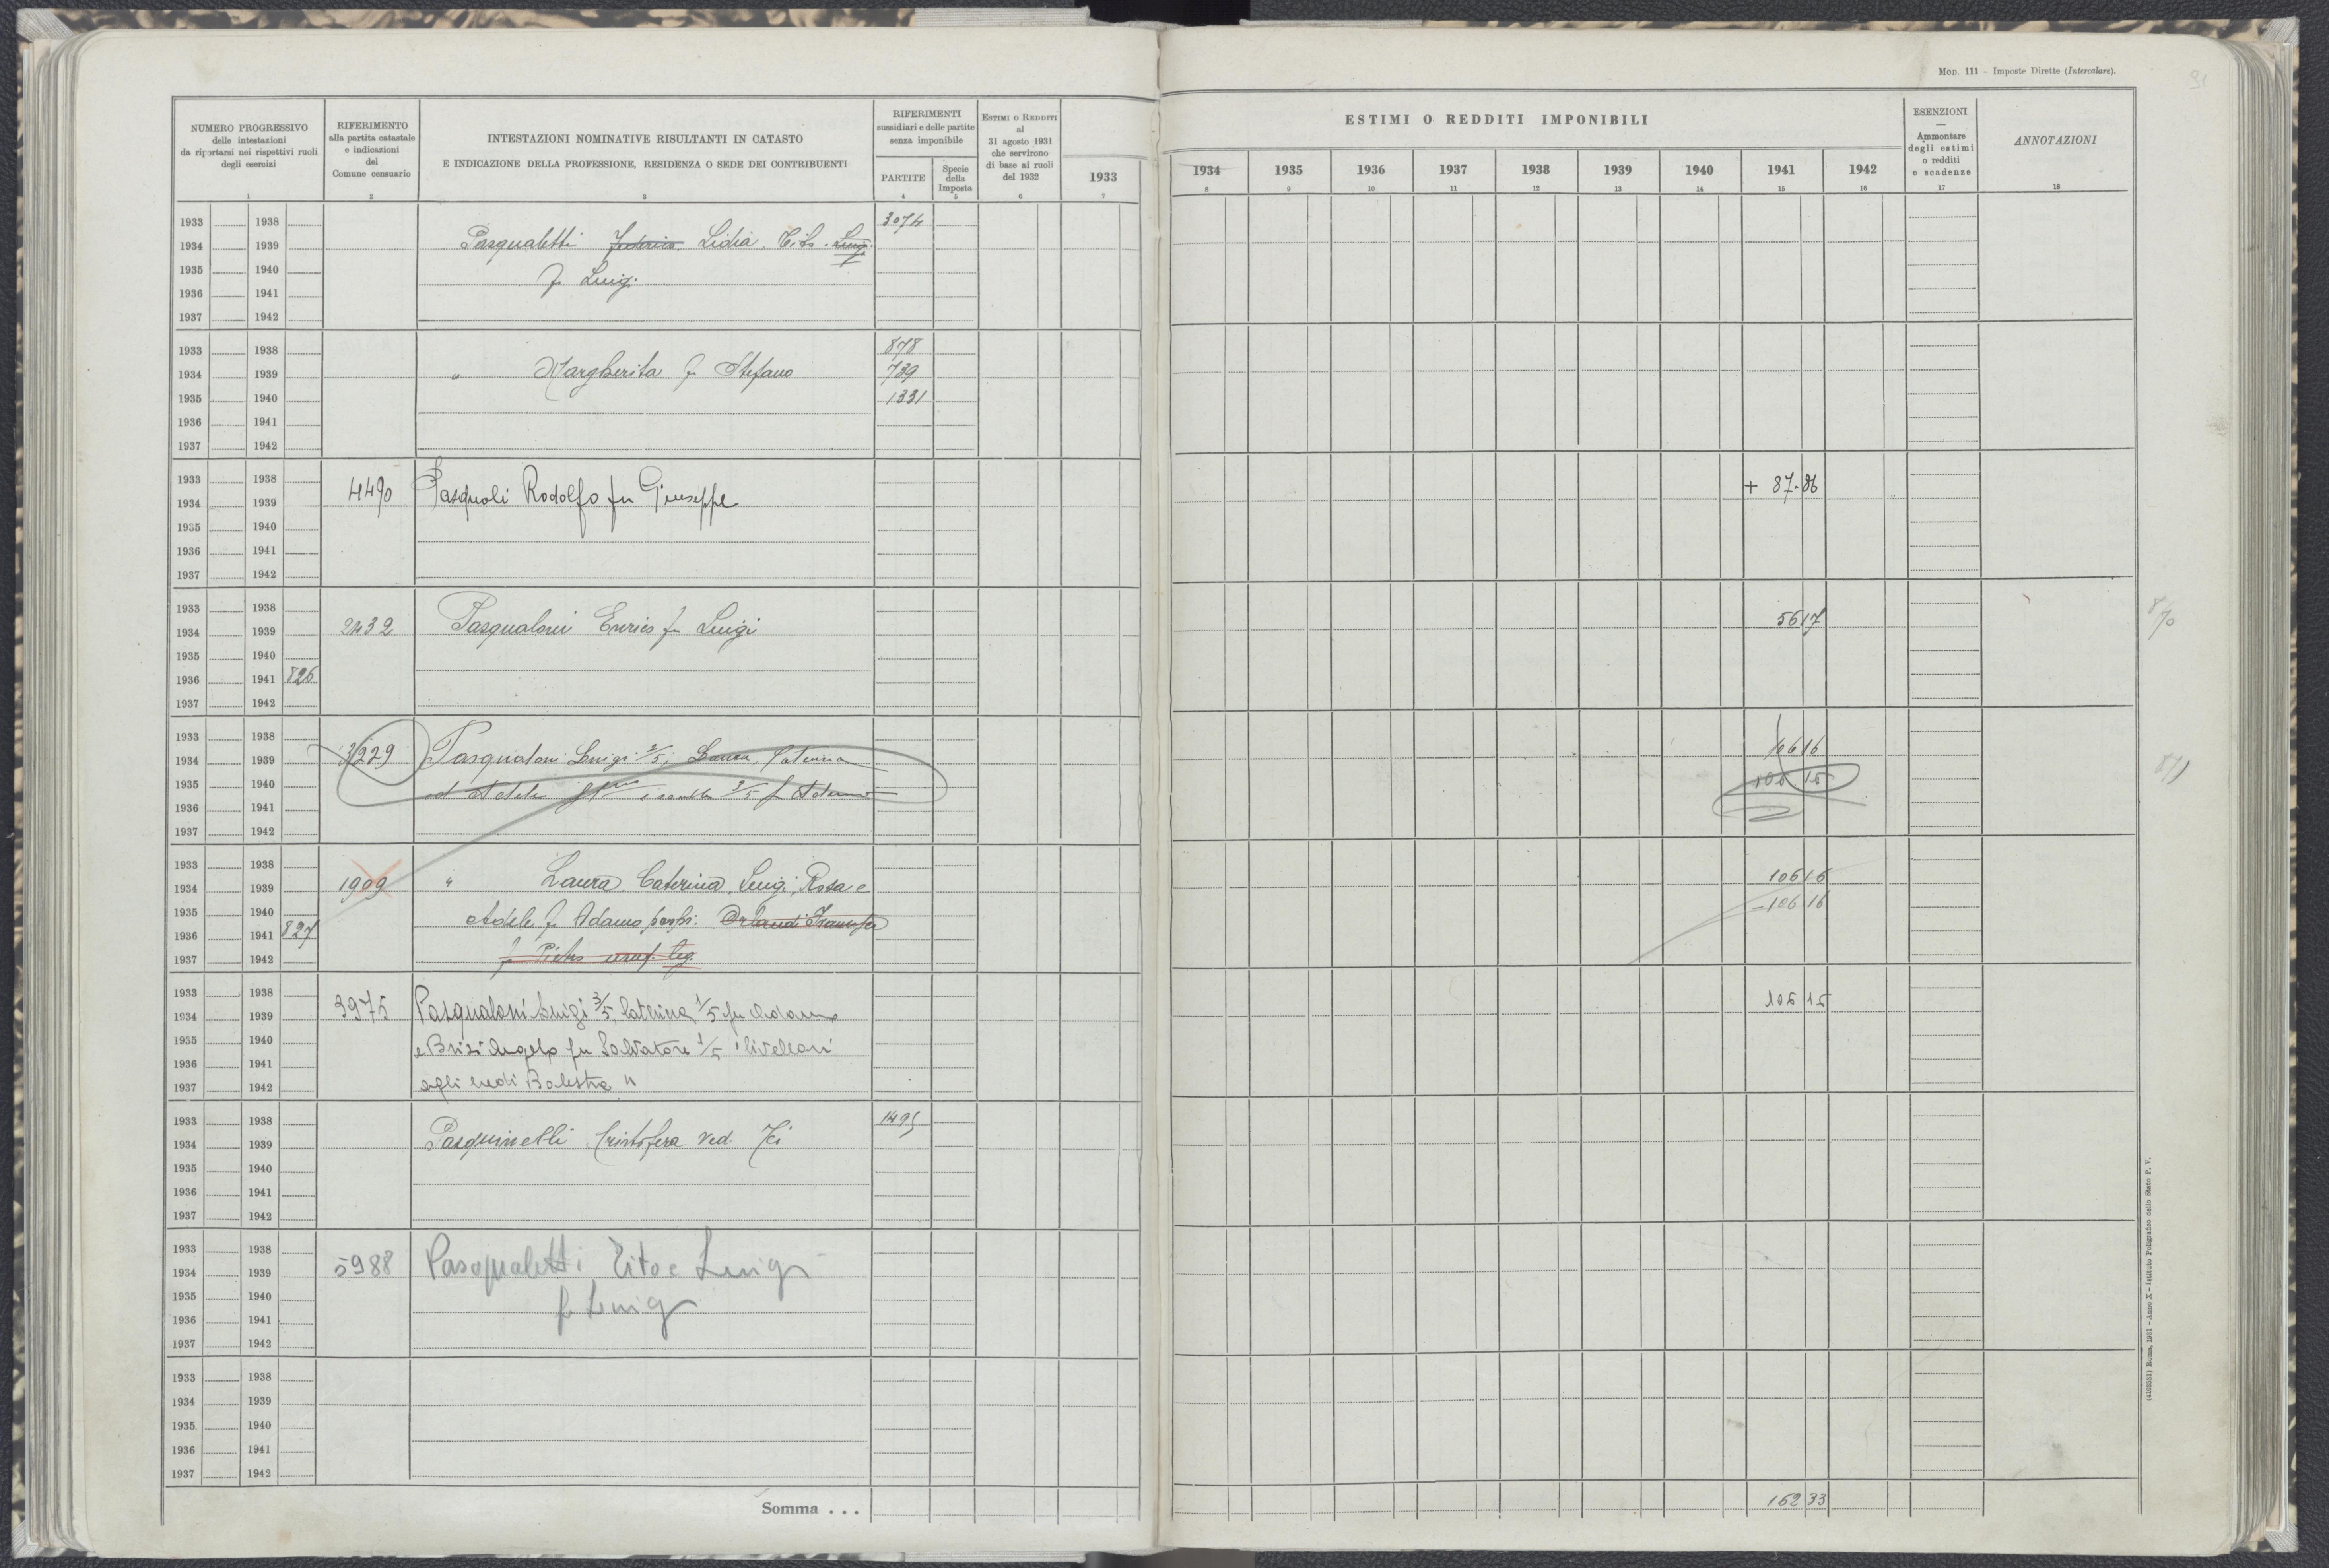 Mod. 111 – Imposte Dirette (Intercalare).
91
NUMERO PROGRESSIVO
delle intestazioni
da riportarsi nei rispettivi ruoli
degli esercizi
1
RIFERIMENTO
alla partita catastale
e indicazioni
del
Comune censuario
2
INTESTAZIONI NOMINATIVE RISULTANTI IN CATASTO
E INDICAZIONE DELLA PROFESSIONE, RESIDENZA O SEDE DEI CONTRIBUENTI
3
RIFERIMENTI
sussidiari e delle partite
senza imponibile
PARTITE
4
Specie
della
Imposta
5
ESTIMI O REDDITI
al
31 agosto 1931
che servirono
di base ai ruoli
del 1932
6
1933
7
ESTIMI O REDDITI IMPONIBILI
1934 1935 1936 1937 1938 1939 1940 1941 1942
8 9 10 11 12 13 14 15 16
ESENZIONI
—
Ammontare
degli estimi
o redditi
e scadenze
17
ANNOTAZIONI
18
1933 1938 3074
1934 1939 Pasqualetti Federico Lidia Tito Luigi
1935 1940 fu Luigi
1936 1941
1937 1942
1933 1938 878
1934 1939 " Margherita fu Stefano 739
1935 1940 1331
1936 1941
1937 1942
1933 1938
1934 1939 4490 Pasquali Rodolfo fu Giuseppe + 87.86
1935 1940
1936 1941
1937 1942
1933 1938
1934 1939 2432 Pasqualoni Enrico fu Luigi 56 17
1935 1940
1936 1941 826
1937 1942
1933 1938
1934 1939 3229 Pasqualoni Luigi 2/5; Laura, Caterina 106 16
1935 1940 ed Adele 3/5 fu Adamo 106 16
1936 1941
1937 1942
1933 1938
1934 1939 1909 " Laura Caterina, Luigi, Rosa e 106 16
1935 1940 Adele fu Adamo Orlandi Francesca – 106 16
1936 1941 827
1937 1942 fu Pietro usuf. leg.
1933 1938
1934 1939 3975 Pasqualoni Luigi 3/5, Caterina 1/5 fu Adamo 106 16
1935 1940
1936 1941 e Brizi Angelo fu Salvatore 1/5 livellari
1937 1942 agli eredi Balestra "
1933 1938 1495
1934 1939 Pasquinelli Cristofera ved.
1935 1940
1936 1941
1937 1942
1933 1938
1934 1939 5988 Pasqualetti Tito e Luigi
1935 1940 fu Luigi
1936 1941
1937 1942
1933 1938
1934 1939
1935 1940
1936 1941
1937 1942
Somma . . . 162 33
(4103551) Roma, 1931 – Anno X – Istituto Poligrafico dello Stato P. V.